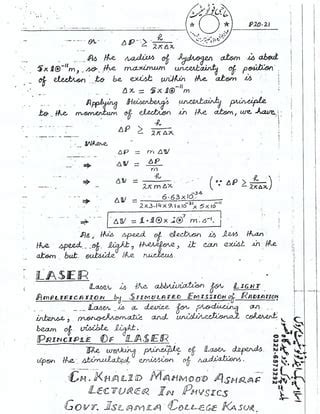 P20-21
or ΔP ≥ h / 2πΔx
As the radius of hydrogen atom is about
5x10⁻¹¹m, so the maximum uncertainty of position
of electron to be exist within the atom is
Δx = 5x10⁻¹¹m
Applying Heisenberg's uncertainty principle
to the momentum of electron in the atom, we have
ΔP ≥ h / 2πΔx
Where
ΔP = mΔV
⇒ ΔV = ΔP / m
⇒ ΔV = h / 2πmΔx (∵ ΔP ≥ h / 2πΔx)
ΔV = 6.63x10⁻³⁴ / 2x3.14x9.1x10⁻³¹x5x10⁻¹¹
⇒ ΔV = 1.10x10⁷ m.s⁻¹.
As, this speed of electron is less than
the speed of light, therefore, it can exist in the
atom but outside the nucleus.
LASER
Laser is the abbriviation for LIGHT
AMPLIFICATION by STIMULATED EMISSION of RADIATION
Laser is a device for producing an
intense, monochromatic and unidirectional coherent
beam of visible light.
PRINCIPLE OF LASER
The working principle of laser depends
upon the stimulated emission of radiations.
CH. KHALID MAHMOOD ASHRAF
LECTURER IN PHYSICS
GOVT. ISLAMIA COLLEGE KASUR.